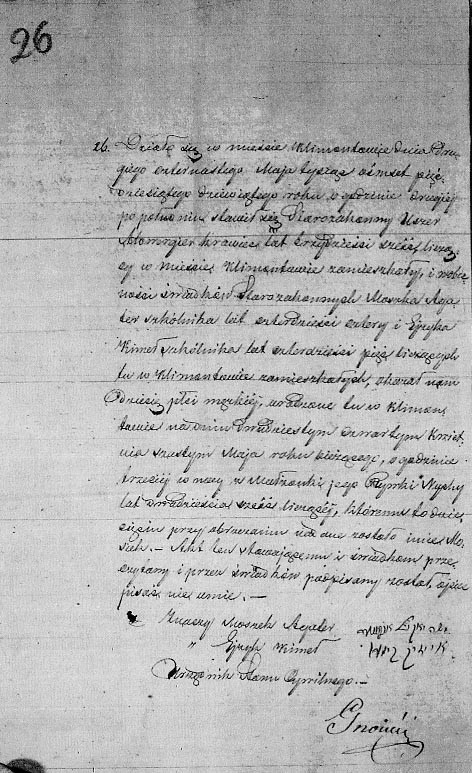 26
26. Działo się w mieście Klimontowie dnia Dru-
giego czternastego Maja tysiąc ośmset pięć
dziesiątego dziewiątego roku o godzinie drugiéj
po południu stawił się Starozakonny Uszer
krawiec lat trzydzieści sześć liczą-
cy w mieście Klimontowie zamieszkały, i w obec
ności świadków Starozakonnych Moszka
szkólnika lat czterdzieści cztery i Ejzyka
Kimel szkólnika lat czterdzieści pięć liczących
tu w Klimontowie zamieszkałych, okazał nam
Dziecię płci męzkiéj, urodzone tu w Klimon
towie na dniu Dwudziestym czwartym Kwiet
nia szóstym Maja roku bieżącego, o godzinie
trzeciéj w nocy z Małżonki jego Rywki
lat dwadzieścia sześć liczącéj, któremu to dzie
cięciu przy obrzezaniu nadane zostało imie Mo
siek. — Akt ten stawającemu i świadkom prze
czytany i przez świadków podpisany został, ojciec
pisać nie umie. —
Moszek
" Ejzyk Kimel
Urzędnik Stanu Cywilnego. —